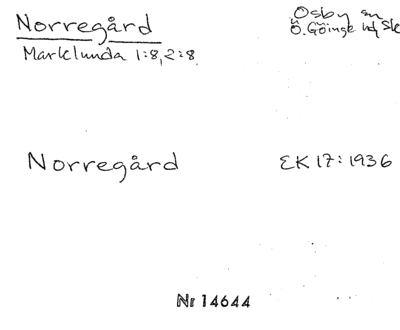 Norregård
Osby sn
Ö. Göinge hd Sk
Marklunda 1:8, 2:8
Norregård
EK 17:1936
Nr 14644